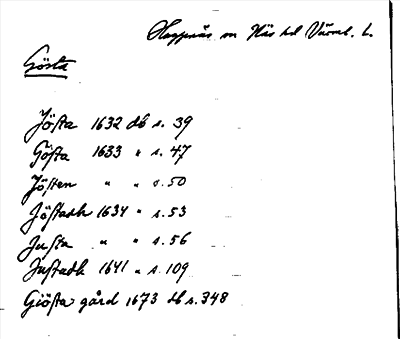 Huggenäs sn Näs hd Värml. l.
Gösta
Jösta 1632 db s. 39
Gösta 1633 " s. 47
Jösten " " s. 50
Jöstadh 1634 " s. 53
Justa " " s. 56
Justadh 1641 " s. 109
Giösta gård 1673 db s. 348